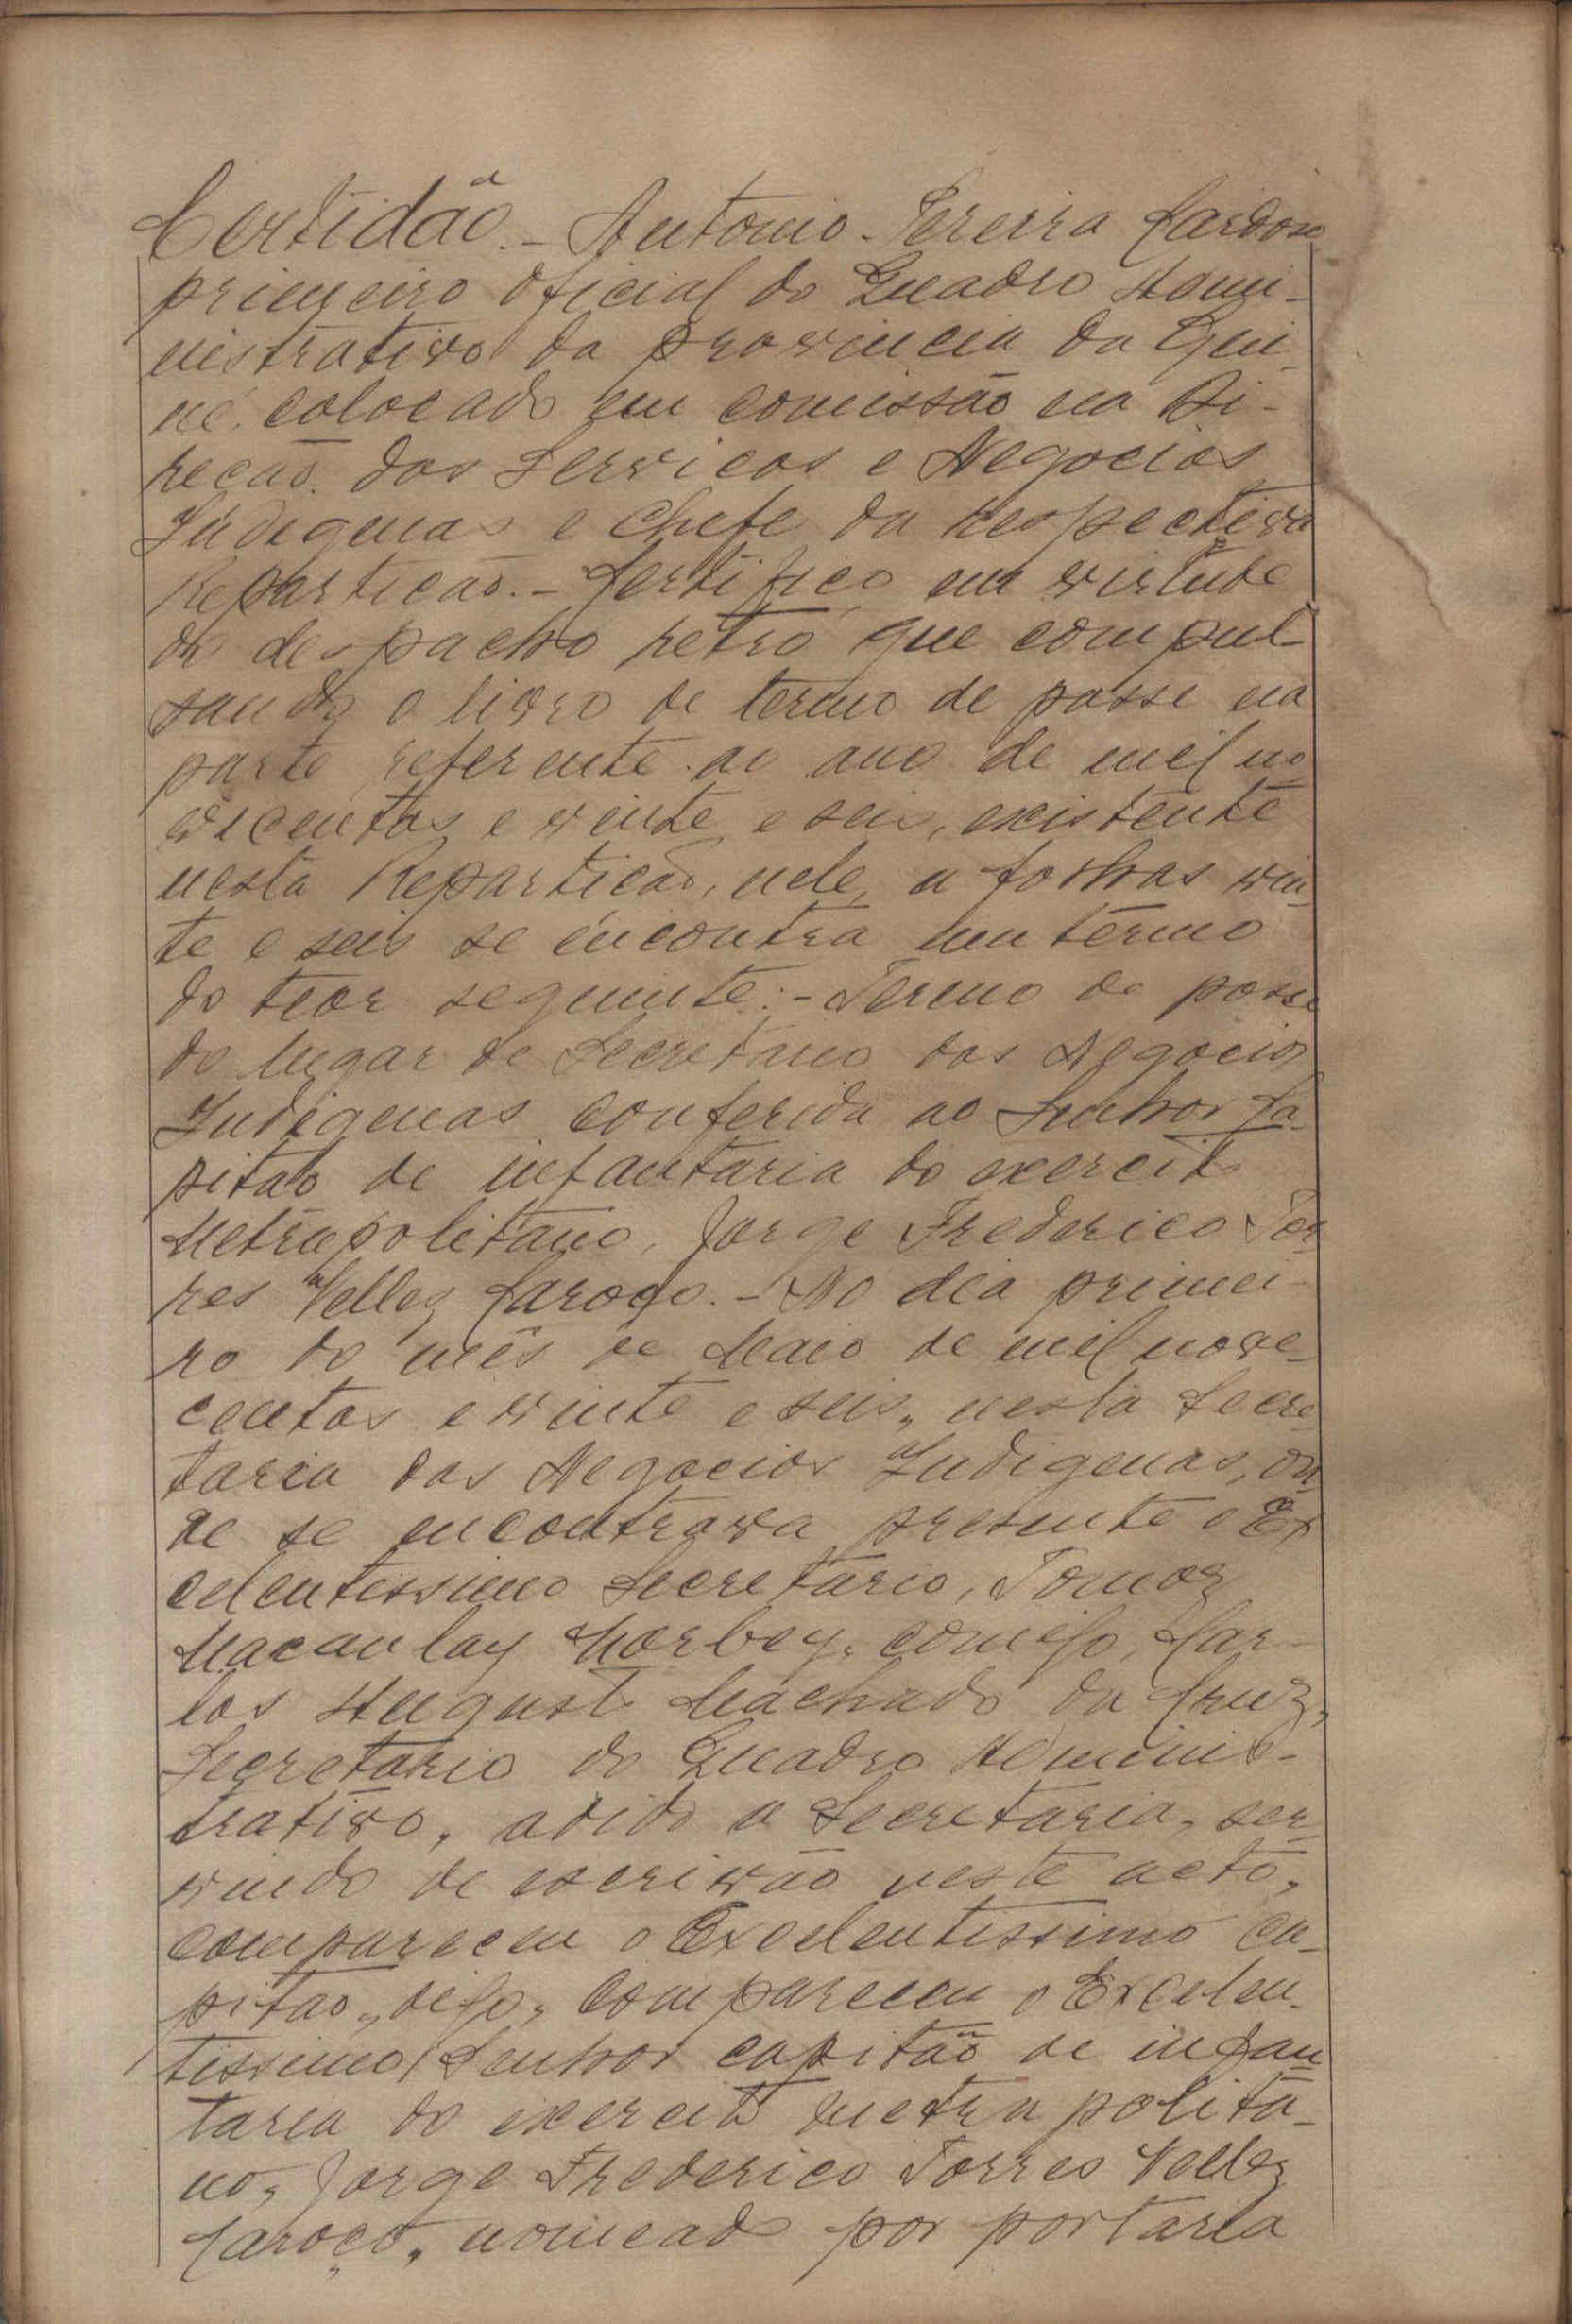 Certidão. - Antonio Pereira Cardoso
primeiro oficial do Quadro Admi-
nistrativo da provincia da Gui-
né, colocado em comissão na Di-
recão dos Servicos e Negocios
Indigenas e Chefe da respectiva
Reparticão. - Certifico em virtude
do despacho retro que compul-
sando o livro de termo de posse na
parte referente ao ano de mil no
vecentos e vinte e seis, existente
nesta Reparticão, nele, a folhas vin-
te e seis se encontra um termo
do teor seguinte: - Termo de posse
do lugar de Secretario dos Negocios
Indigenas conferida ao Senhor Ca-
pitão de infantaria do exercito
Metropolitano, Jorge Frederico Tor-
res Vellez Caroço. - No dia primei-
ro do mês de Maio de mil nove-
centos e vinte e seis, nesta Secre
taria dos Negocios Indigenas, on-
de se encontrava presente o Ex
celentissimo Secretario, Tomaz
Macaulay Morbey, comigo, Car-
los Augusto Machado da Cruz,
Secretario do Quadro Adminis-
trativo, adido a Secretaria, ser-
vindo de escrivão neste acto,
compareceu o Excelentissimo ca-
pitao, digo, compareceu o Excelen-
tissimo Senhor capitão de infan-
taria do exercito metropolita-
no, Jorge Frederico Torres Vellez
Caroço, nomeado por portaria